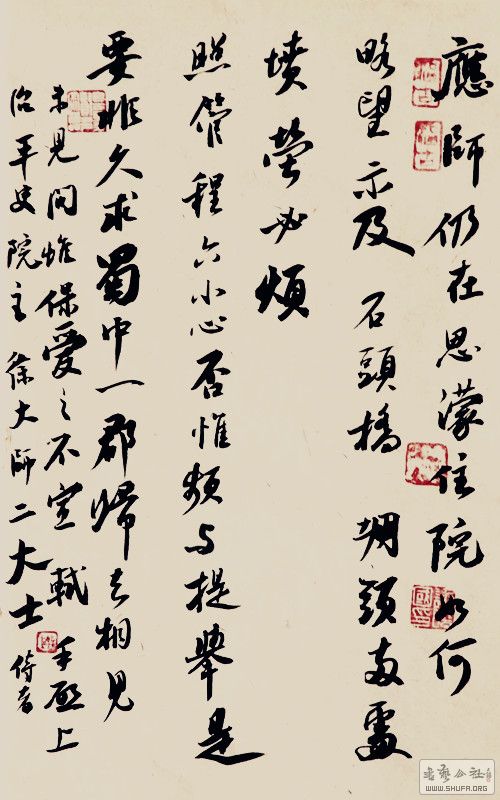 應師仍在思濛住院如何
略望示及石頭橋堋頭两處
墳塋必煩
照管程六小心否惟頻与提舉是
要非久求蜀中一郡歸去相見
未見間惟保愛之不宣軾手啟上
治平史院主徐大師二大士侍者
WWW.SHUFA.ORG